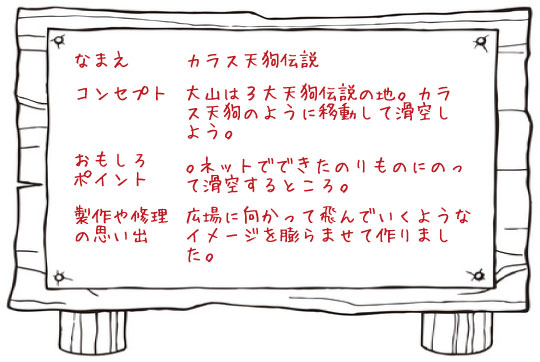 なまえ カラス天狗伝説
コンセプト 大山は3大天狗伝説の地。カラ
ス天狗のように移動して滑空し
よう。
おもしろ
ポイント
。ネットでできたのりものにのっ
て滑空するところ。
製作や修理 広場に向かって飛んでいくような
の思い出 イメージを膨らませて作りまし
た。